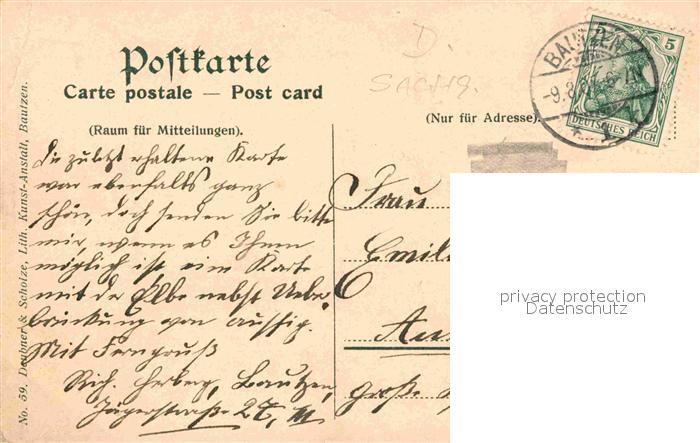 Postkarte
Carte postale — Post card
(Raum für Mitteilungen).
(Nur für Adresse).
D.
SACHS.
BAUTZEN
5 5
DEUTSCHES REICH
Die zuletzt erhaltene Karte
war ebenfalls ganz
schön, doch senden Sie bitte
mir, wenn es Ihnen
möglich ist eine Karte
mit der Elbe nebst Uebe
brückung von Aussig.
Mit Ferngruß
Rich. Herberg, Bautzen,
Jägerstraße 27, III
Frau
Emil
Au
Große
No. 59. Deubner & Scholze, Lith. Kunst-Anstalt, Bautzen.
privacy protection
Datenschutz